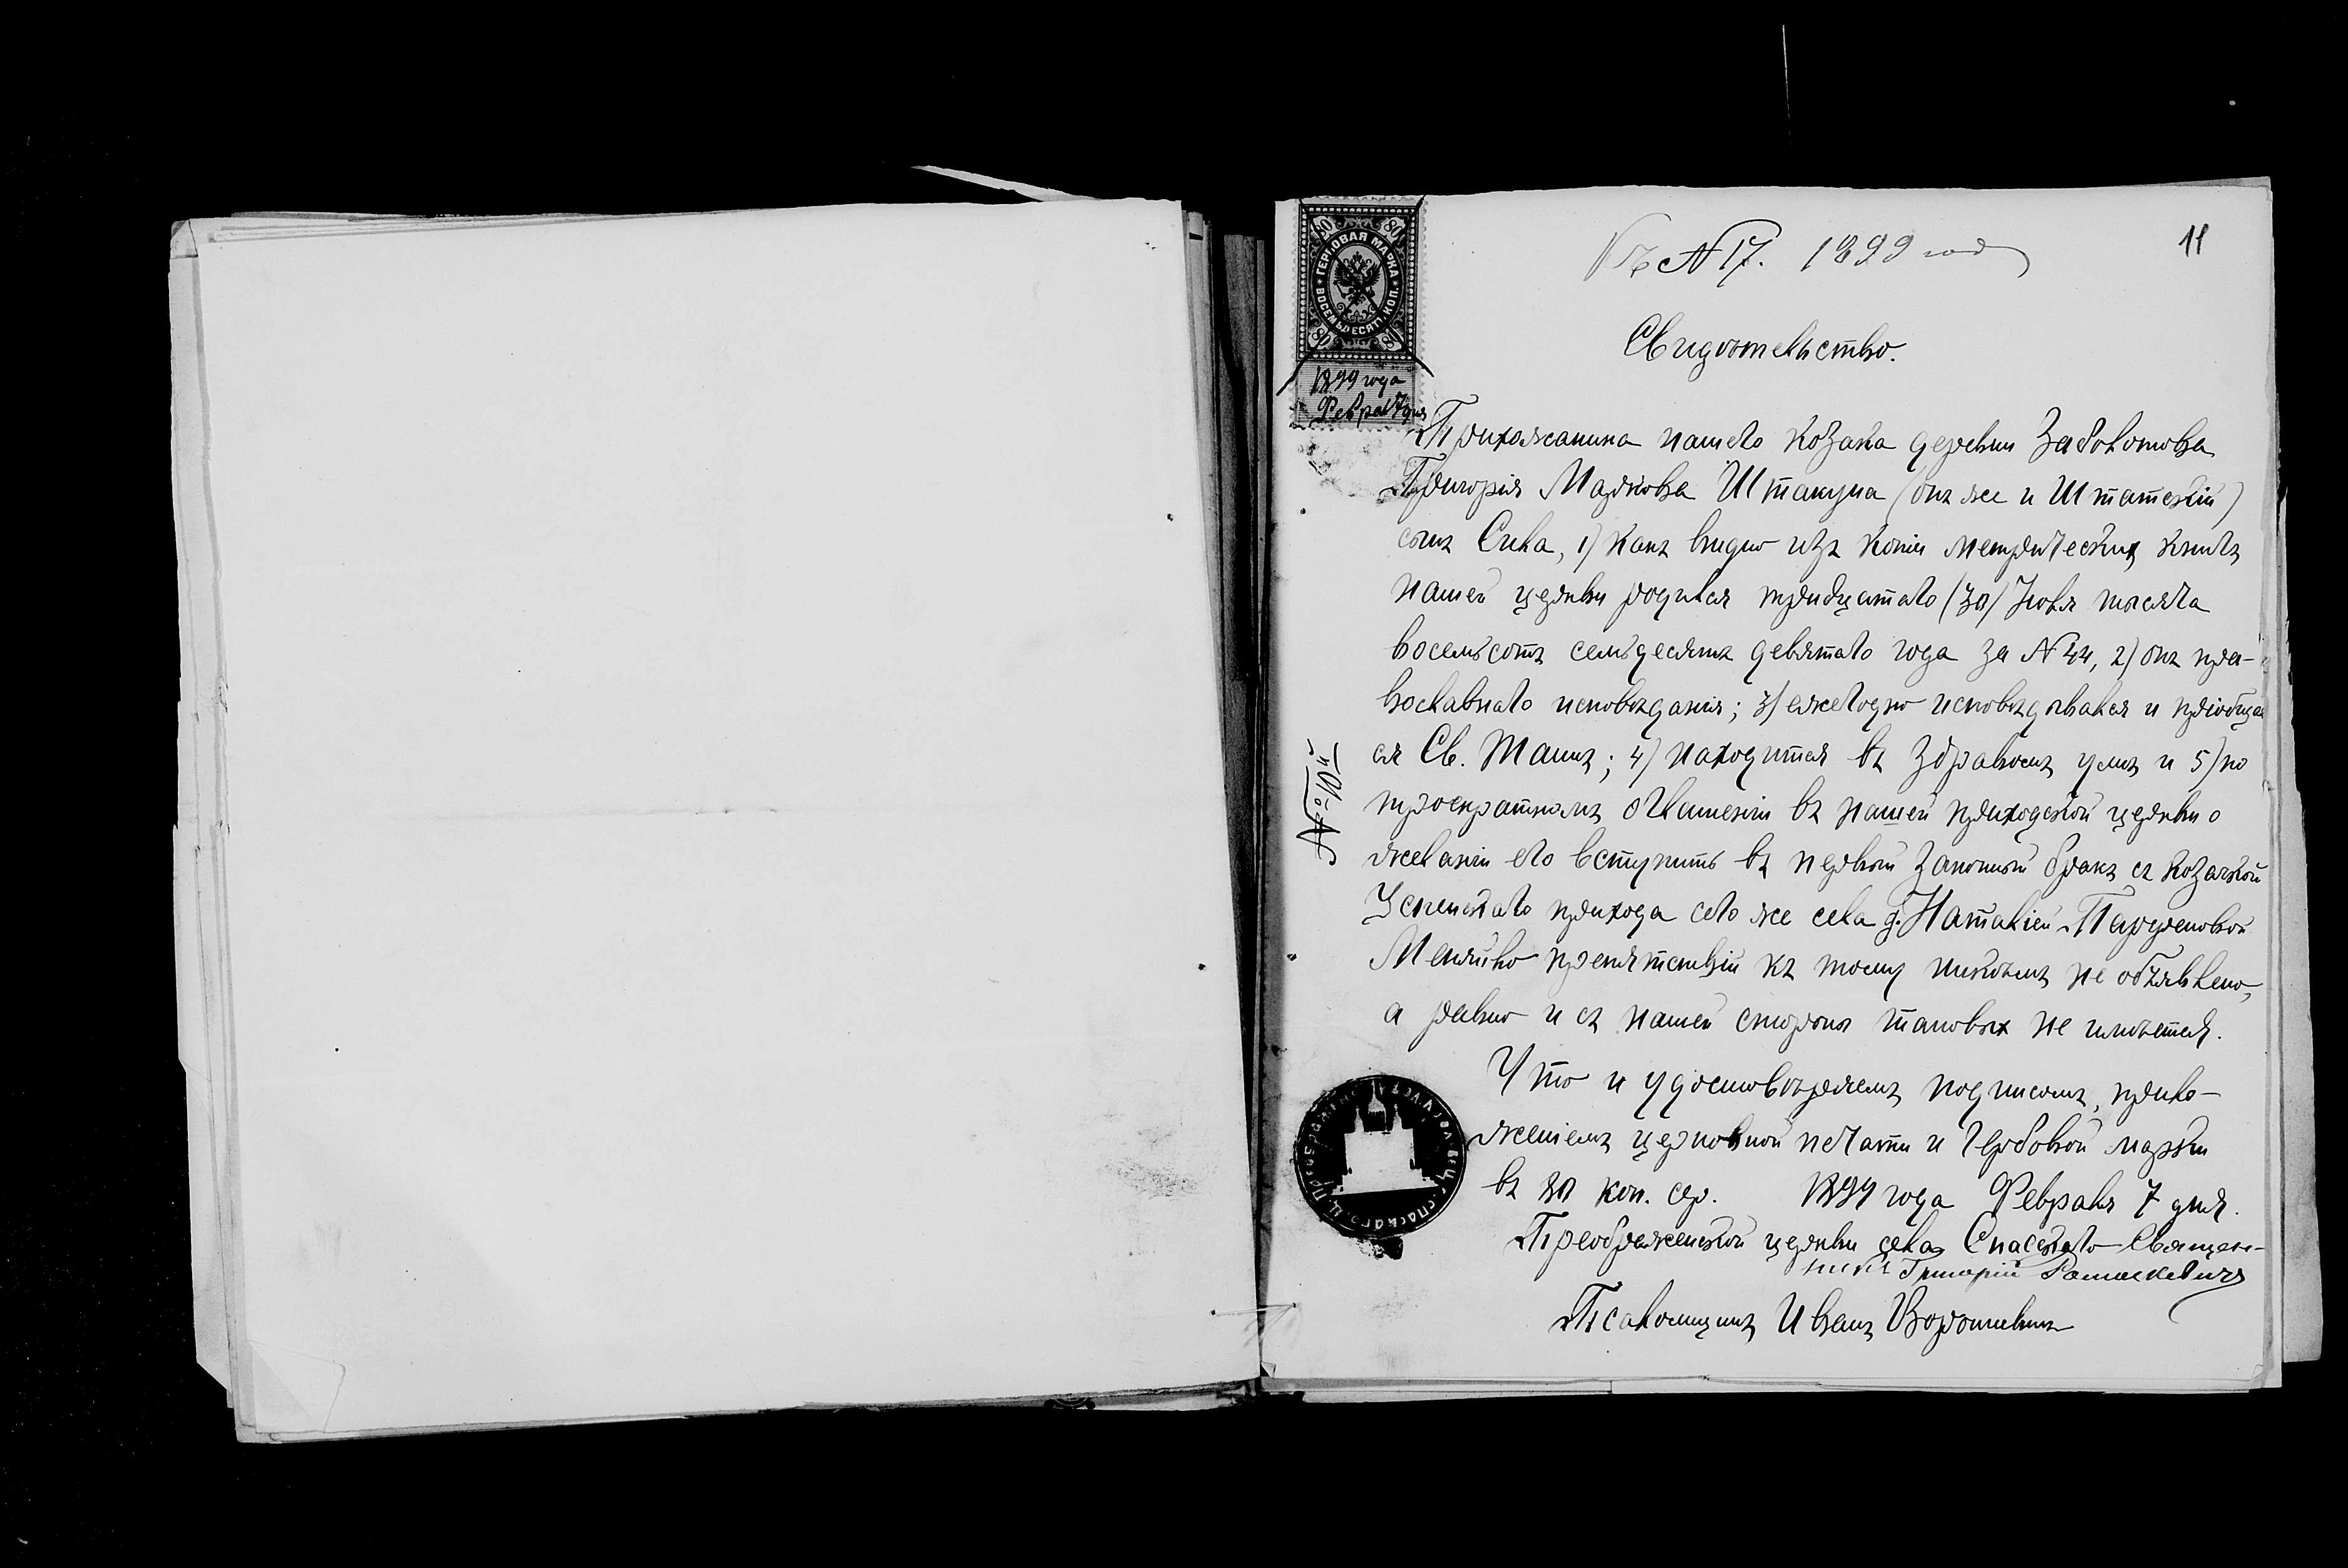 Къ № 17. 1899 года
11
80 80
ГЕРБОВАЯ МАРКА
ВОСЕМЬДЕСЯТЪ КОП.
80
1899 года
Февра 7 дня
Свидѣтельство.
Прихожанина нашего козака деревни Заболотова
Григорія Маркова Штакуна (онъ же и Штатскій)
сынъ Сила, 1) какъ видно изъ копіи метрическихъ книгъ
нашей церкви родился тридцатаго (30) Іюля тысяча
восемьсотъ семьдесятъ девятаго года за № 44, 2) онъ пра-
вославнаго исповѣданія; 3) ежегодно исповѣдывался и пріобщал
ся Св. Таинъ; 4) находится въ здравомъ умѣ и 5) по
троекратномъ оглашеніи въ нашей приходской церкви о
желаніи его вступить въ первый законный бракъ съ козачкой
Успенскаго прихода сего же села д. Наталіей Парѳеновой
препятствій къ тому никѣмъ не объявлено,
а равно и съ нашей стороны таковыхъ не имѣется.
№ 10й
Что и удостовѣряемъ подписомъ, прило-
женіемъ церковной печати и гербовой марки
въ 80 коп. сер. 1899 года Февраля 7 дня.
Преображенской церкви села Спаскаго Священ-
никъ Григорій Ромаскевичъ
Псаломщикъ Иванъ